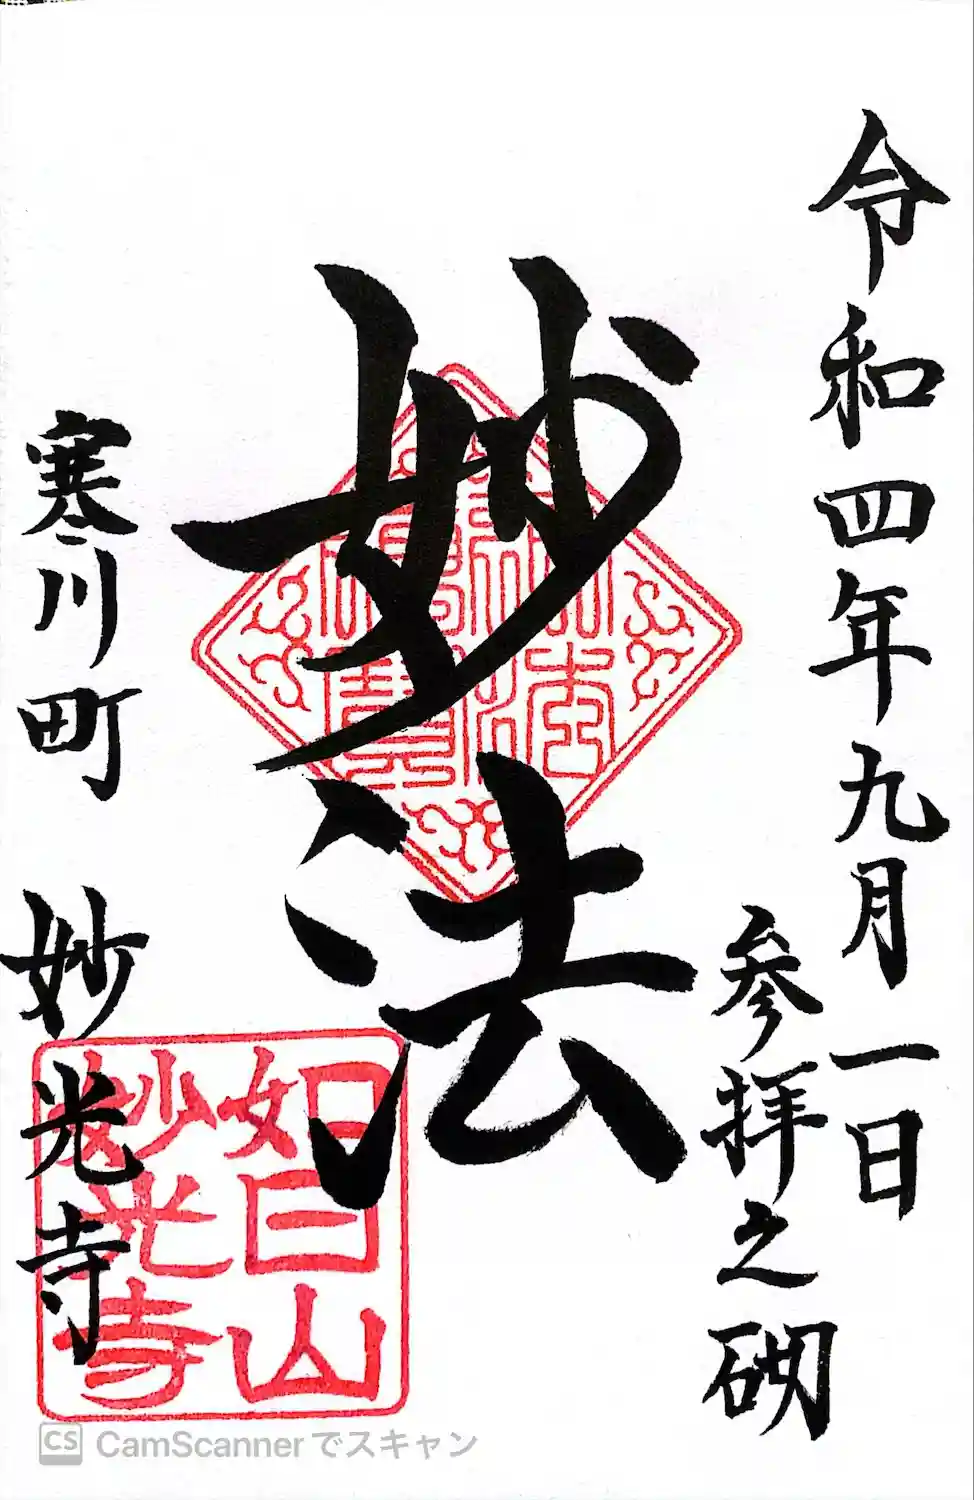 令和四年九月一日
参拝之砌
妙法
寒川町 妙光寺
如日山
妙光寺
CS CamScannerでスキャン